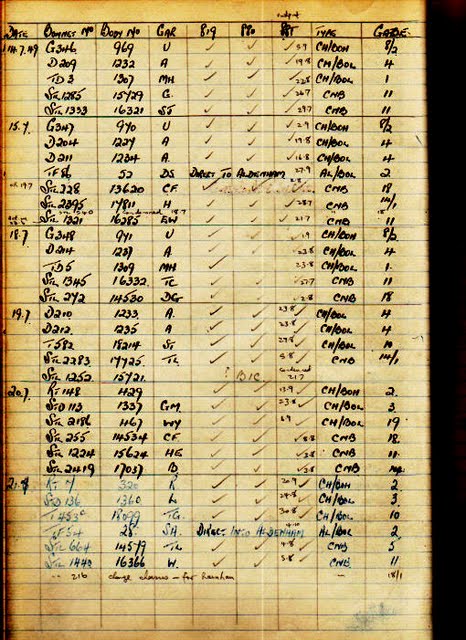 DATE BONNET NO BODY NO GAR 819 880 885 TYPE GARAGE
14.7.49 G346 969 U ✓ ✓ CH/BOH 8/2
D209 1232 A ✓ ✓ 19.8 CH/BOL 4
TD3 1307 MH ✓ ✓ 22.8 CH/BOL 1
STL 1285 15729 G. ✓ ✓ 26.7 CNB 11
STL 1333 16321 ✓ ✓ 29.7 CNB 11
15.7 G347 970 U ✓ ✓ 2.9 CH/BOH 8/2
D204 1227 A ✓ ✓ 19.8 CH/BOL 4
D211 1234 A. ✓ ✓ 16.8 CH/BOL 4
TF86 52 DS DIRECT TO ALDENHAM 27.9 AL/BOL 2
STL 228 13620 CF ✓ CNB 18
STL 2395 17811 H ✓ ✓ 28.7 CNB 14/1
STL 1321 16285 EW ✓ ✓ 21.7 CNB 11
18.7 G348 971 U ✓ ✓ CH/BOH 8/2
D214 1237 A ✓ ✓ 23.8 CH/BOL 4
TD5 1309 MH ✓ ✓ 23.8 CH/BOL 1
STL 1345 16332 TC ✓ ✓ 27.7 CNB 11
STL 272 14530 DG ✓ ✓ 2.8 CNB 18
19.7 D210 1233 A. ✓ ✓ 23.8 ✓ CH/BOL 4
D212 1235 A ✓ ✓ 23.8 ✓ CH/BOL 4
T582 18214 ST ✓ ✓ ✓ CH/BOL 10
STL 2283 17725 TL ✓ ✓ 5.8 ✓ CNB 14/1
STL 1252 15721 ? BIC 21.7
20.7 429 ✓ ✓ 13.9 ✓ CH/BOH 2
STD 113 1337 GM ✓ ✓ 23.8 ✓ CH/BOL 3
STL 2186 467 WY ✓ ✓ ✓ CH/BOL 19
STL 255 14534 CF ✓ ✓ 8.8 CNB 18
STL 1224 15624 HE ✓ ✓ 3.8 CNB 11
STL 2419 17037 ✓ ✓ 3.8 CNB
320 R ✓ ✓ 20.9 ✓ CH/BOH 2
STD 136 1360 ✓ ✓ 24.8 ✓ CH/BOL 3
T453c 18099 TG. ✓ ✓ 30.8 ✓ CH/BOL 10
TF54 28 SA. DIRECT INTO ALDENHAM AL/BOL 2
STL 664 14579 TL ✓ ✓ 4.8 ✓ CNB 5
STL 1440 16366 W. ✓ ✓ 5.8 ✓ CNB 11
216 change chassis - for 18/1